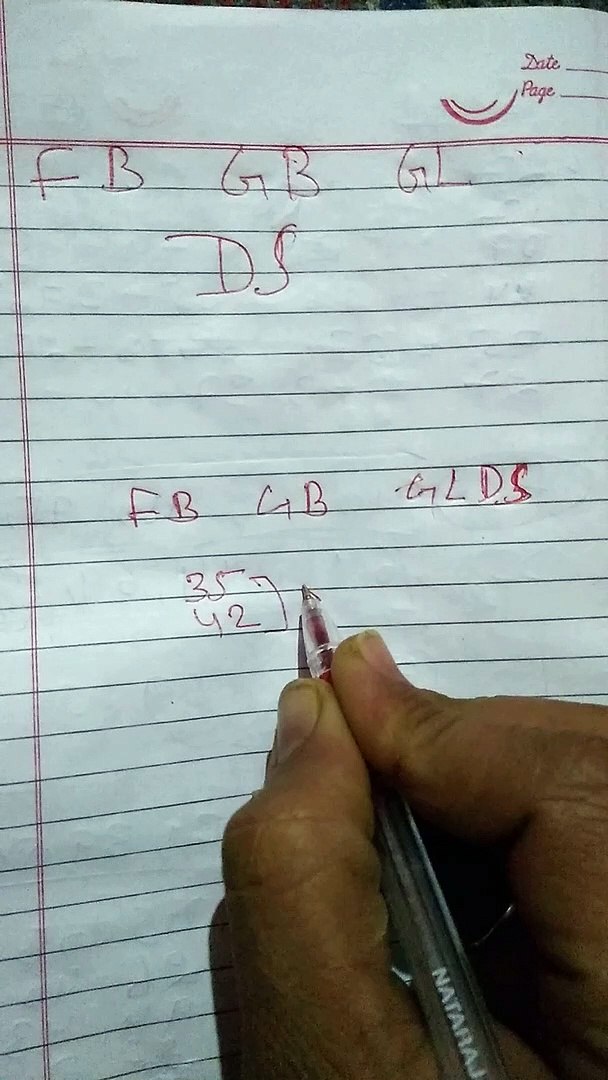 Date
Page
FB GB GL
DS
FB GB GLDS
35
42
NATARAJ